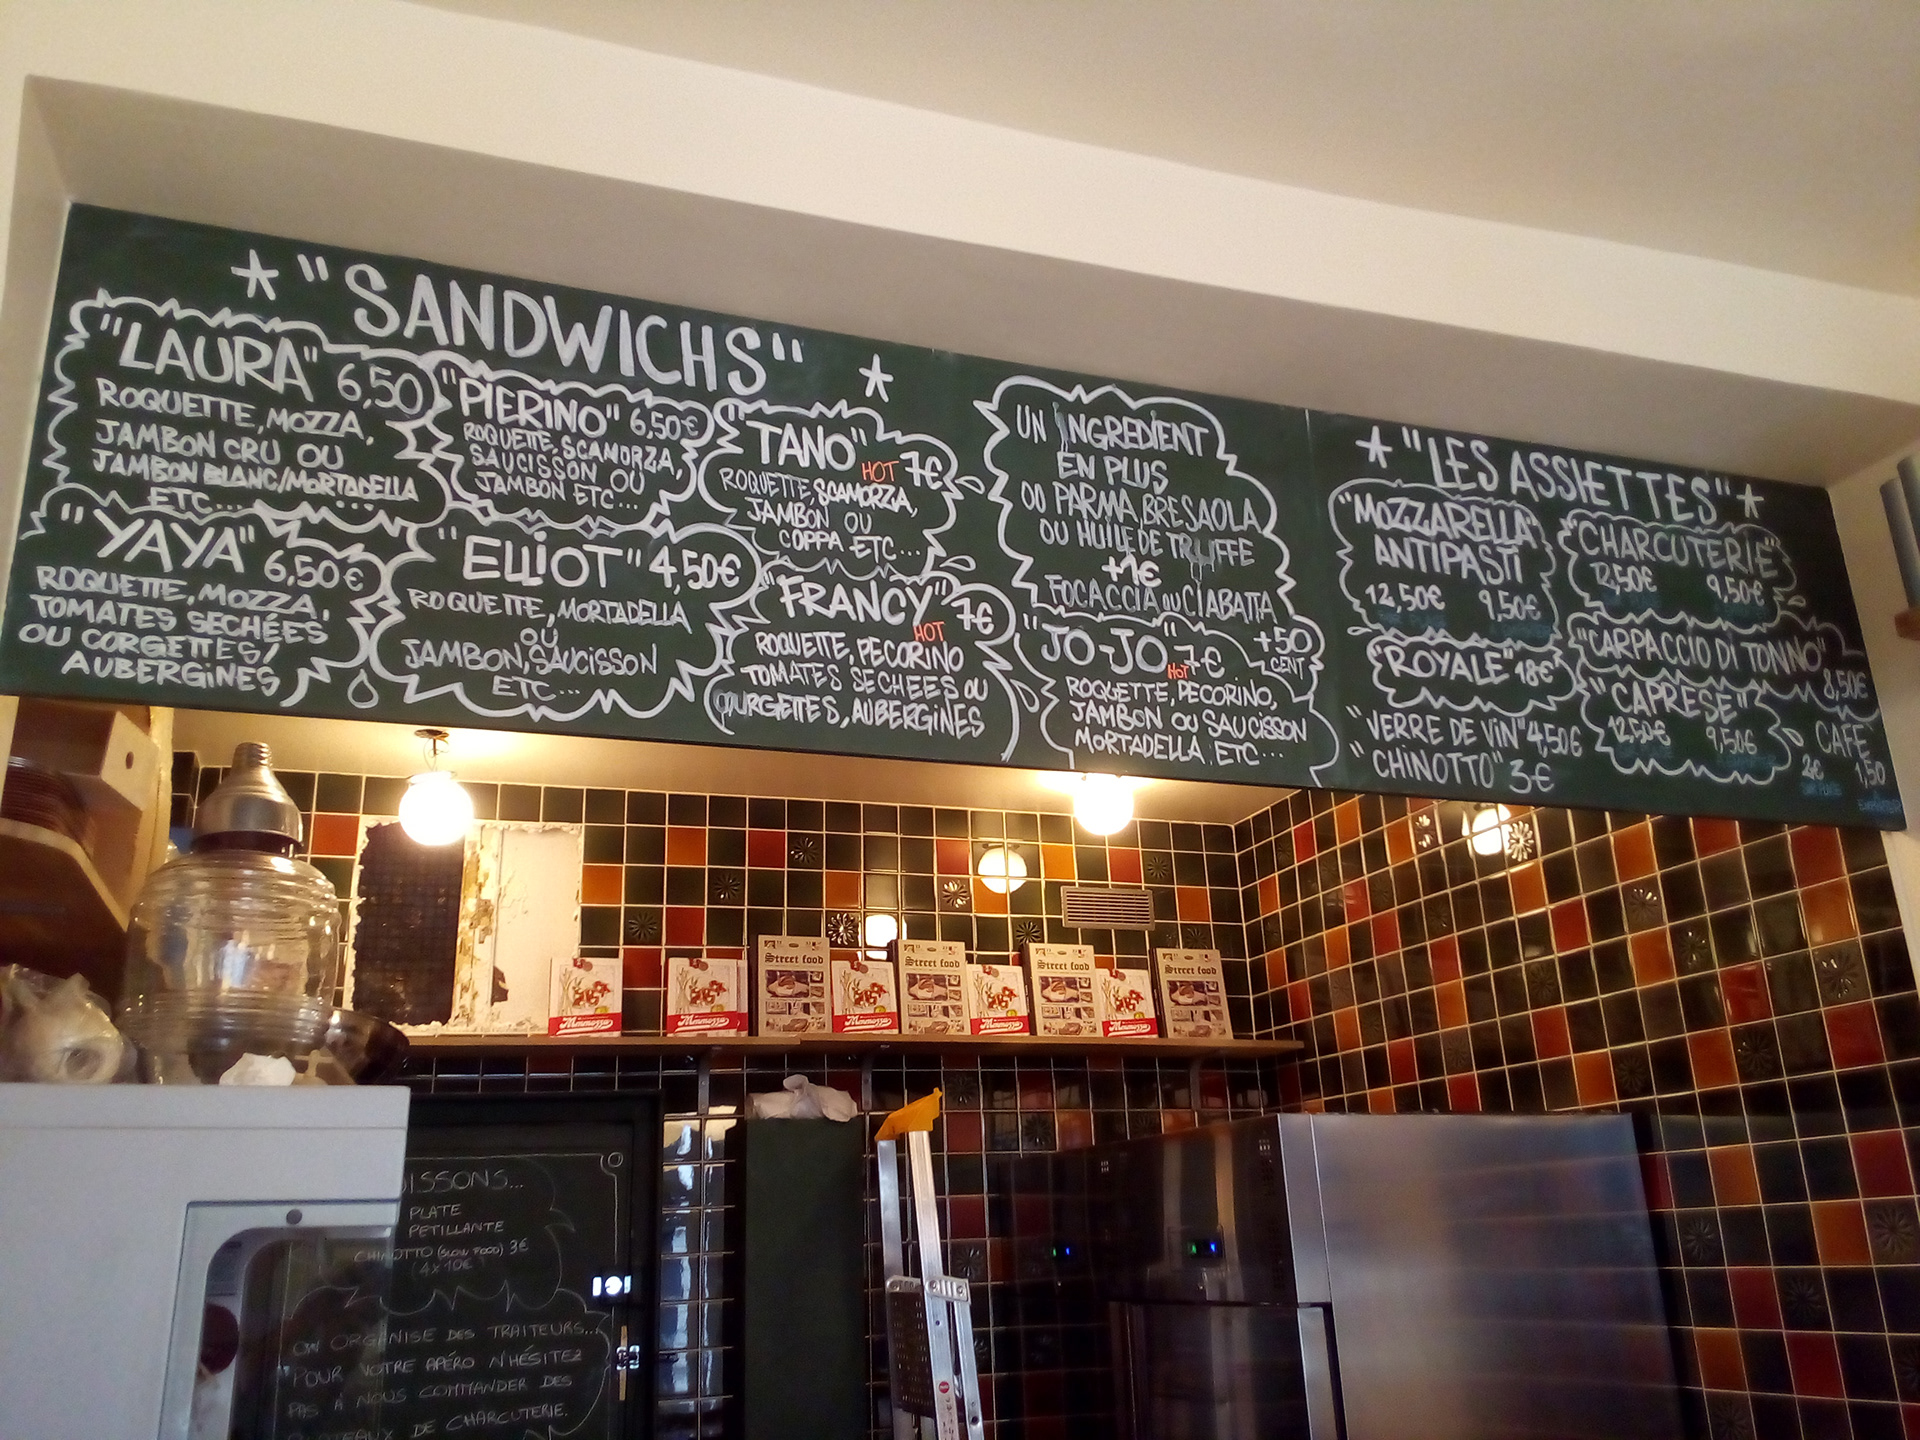 "SANDWICHS"
"LAURA" 6,50
ROQUETTE, MOZZA,
JAMBON CRU OU
JAMBON BLANC/MORTADELLA
ETC...
"PIERINO" 6,50€
ROQUETTE, SCAMORZA,
SAUCISSON OU
JAMBON ETC...
"TANO" HOT 7€
ROQUETTE, SCAMORZA,
JAMBON OU
COPPA ETC...
"YAYA" 6,50€
ROQUETTE, MOZZA,
TOMATES SECHÉES
OU CORGETTES/
AUBERGINES
"ELLIOT" 4,50€
ROQUETTE, MORTADELLA
OU
JAMBON, SAUCISSON
ETC...
"FRANCY" 7€
HOT
ROQUETTE, PECORINO
TOMATES SECHEES OU
OURGETTES, AUBERGINES
UN INGREDIENT
EN PLUS
OU PARMA, BRESAOLA
OU HUILE DE TRUFFE
+1€
FOCACCIA OU CIABATTA
+50
CENT
"JO-JO" HOT 7€
ROQUETTE, PECORINO,
JAMBON OU SAUCISSON
MORTADELLA, ETC...
"LES ASSIETTES"
"MOZZARELLA"
ANTIPASTI
12,50€ 9,50€
"CHARCUTERIE"
12,50€ 9,50€
"ROYALE" 18€
"CARPACCIO DI TONNO"
8,50€
"CAPRESE"
12,50€ 9,50€
"VERRE DE VIN" 4,50€
"CHINOTTO" 3€
CAFE
2€ 1,50
SUR PLACE
Street food
Street food
Street food
Mmmozza
Mmmozza
Mmmozza
Mmmozza
Mmmozza
OISSONS...
PLATE
PETILLANTE
CHINOTTO (SLOW FOOD) 3€
(4x10€)
ON ORGANISE DES TRAITEURS...
POUR VOTRE APÉRO N'HÉSITEZ
PAS À NOUS COMMANDER DES
PLATEAUX DE CHARCUTERIE.